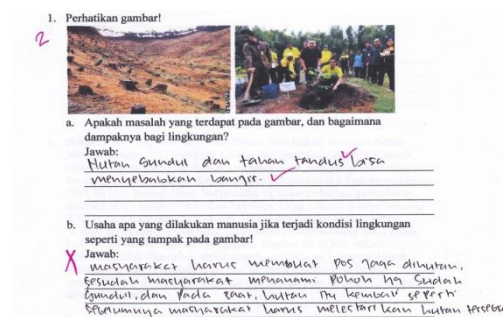 1. Perhatikan gambar!
2
a. Apakah masalah yang terdapat pada gambar, dan bagaimana
dampaknya bagi lingkungan?
Jawab:
Hutan gundul dan tahan tandus bisa
menyebabkan bangir.
b. Usaha apa yang dilakukan manusia jika terjadi kondisi lingkungan
seperti yang tampak pada gambar!
Jawab:
masyarakat harus membuat pos jaga dihutan,
sesudah masyarakat menanami pohon yg sudah
gundul, dan pada saat, hutan itu kembali seperti
sebelumnya masyarakat harus melestarikan hutan tersebut